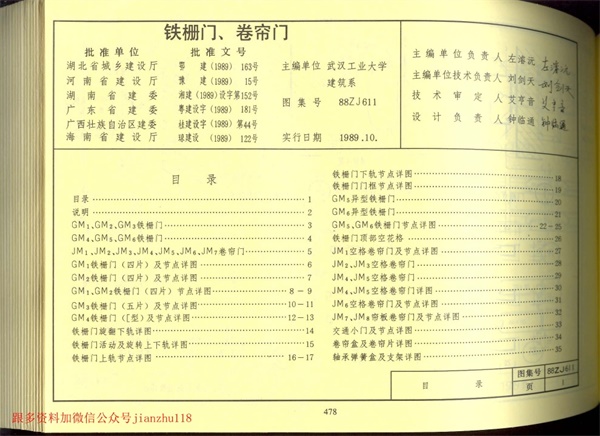 铁栅门、卷帘门
批准单位 批准文号
湖北省城乡建设厅 鄂建(1989)163号
河南省建设厅 豫建(1989)15号
湖南省建委 湘建(1989)设字第152号
广东省建委 粤建设字(1989)181号
广西壮族自治区建委 桂建设字(1989)第44号
海南省建设厅 琼建设(1989)122号
主编单位 武汉工业大学
建筑系
图集号 88ZJ611
实行日期 1989.10.
主编单位负责人 左濬沅
主编单位技术负责人 刘剑天
技术审定人 艾亨音
设计负责人 钟临通
目录
目录 1
说明 2
GM₁、GM₂、GM₃铁栅门 3
GM₄、GM₅、GM₆铁栅门 4
JM₁、JM₂、JM₃、JM₄、JM₅、JM₆、JM₇卷帘门 5
GM₁铁栅门(四片)及节点详图 6
GM₂铁栅门(四片)及节点详图 7
GM₁、GM₂铁栅门(四片)节点详图 8-9
GM₃铁栅门(五片)及节点详图 10-11
GM₄铁栅门([型)及节点详图 12-13
铁栅门旋翻下轨详图 14
铁栅门活动及旋转上下轨详图 15
铁栅门上轨节点详图 16-17
铁栅门下轨节点详图 18
铁栅门门框节点详图 19
GM₅异型铁栅门 20
GM₆异型铁栅门 21
GM₅、GM₆铁栅门节点详图 22-25
铁栅门顶部空花格 26
JM₁空格卷帘门及节点详图 27
JM₂、JM₃空格卷帘门 28
JM₄、JM₅空格卷帘门 29
JM₄、JM₅空格卷帘门详图 30
JM₆空格卷帘门及节点详图 31
JM₇、JM₈帘板卷帘门及节点详图 32
交通小门及节点详图 33
卷帘盒及卷帘片详图 34
轴承弹簧盒及支架详图 35
目录 图集号 88ZJ611
页 1
478
跟多资料加微信公众号jianzhu118